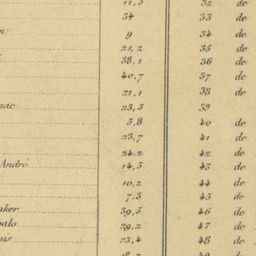 11,5 32 de
34 33 de
9 34 de
21,2 35 de
38,1 36 de
40,7 37 de
21,1 38 de
nac 23,5 39
5,8 40 de
23,7 41 de
24,2 42 de
André 14,5 43 de
10,2 44 de
7,5 45 de
aker 39,5 46 de
balo 39,2 47 de
ns 23,4 48 de